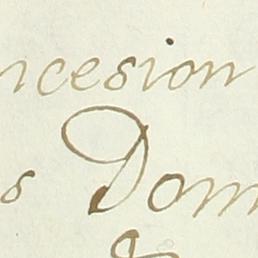 ncesion
s Dom